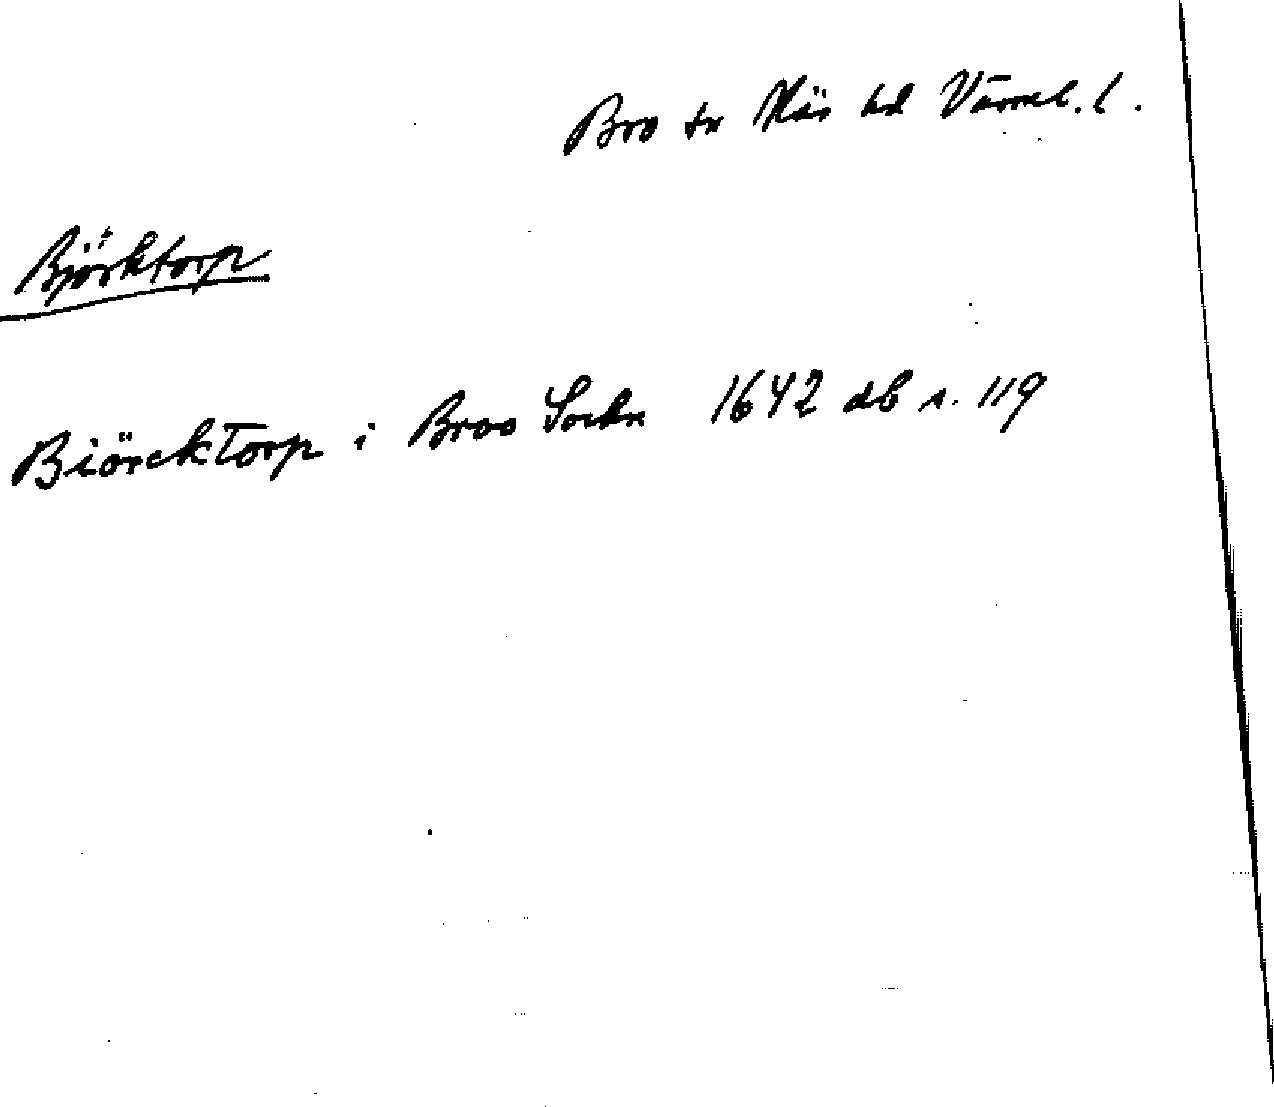 Bro sn Näs hd Värml. l.
Björktorp
Biörcktorp i Broo Sockn 1642 db s. 119